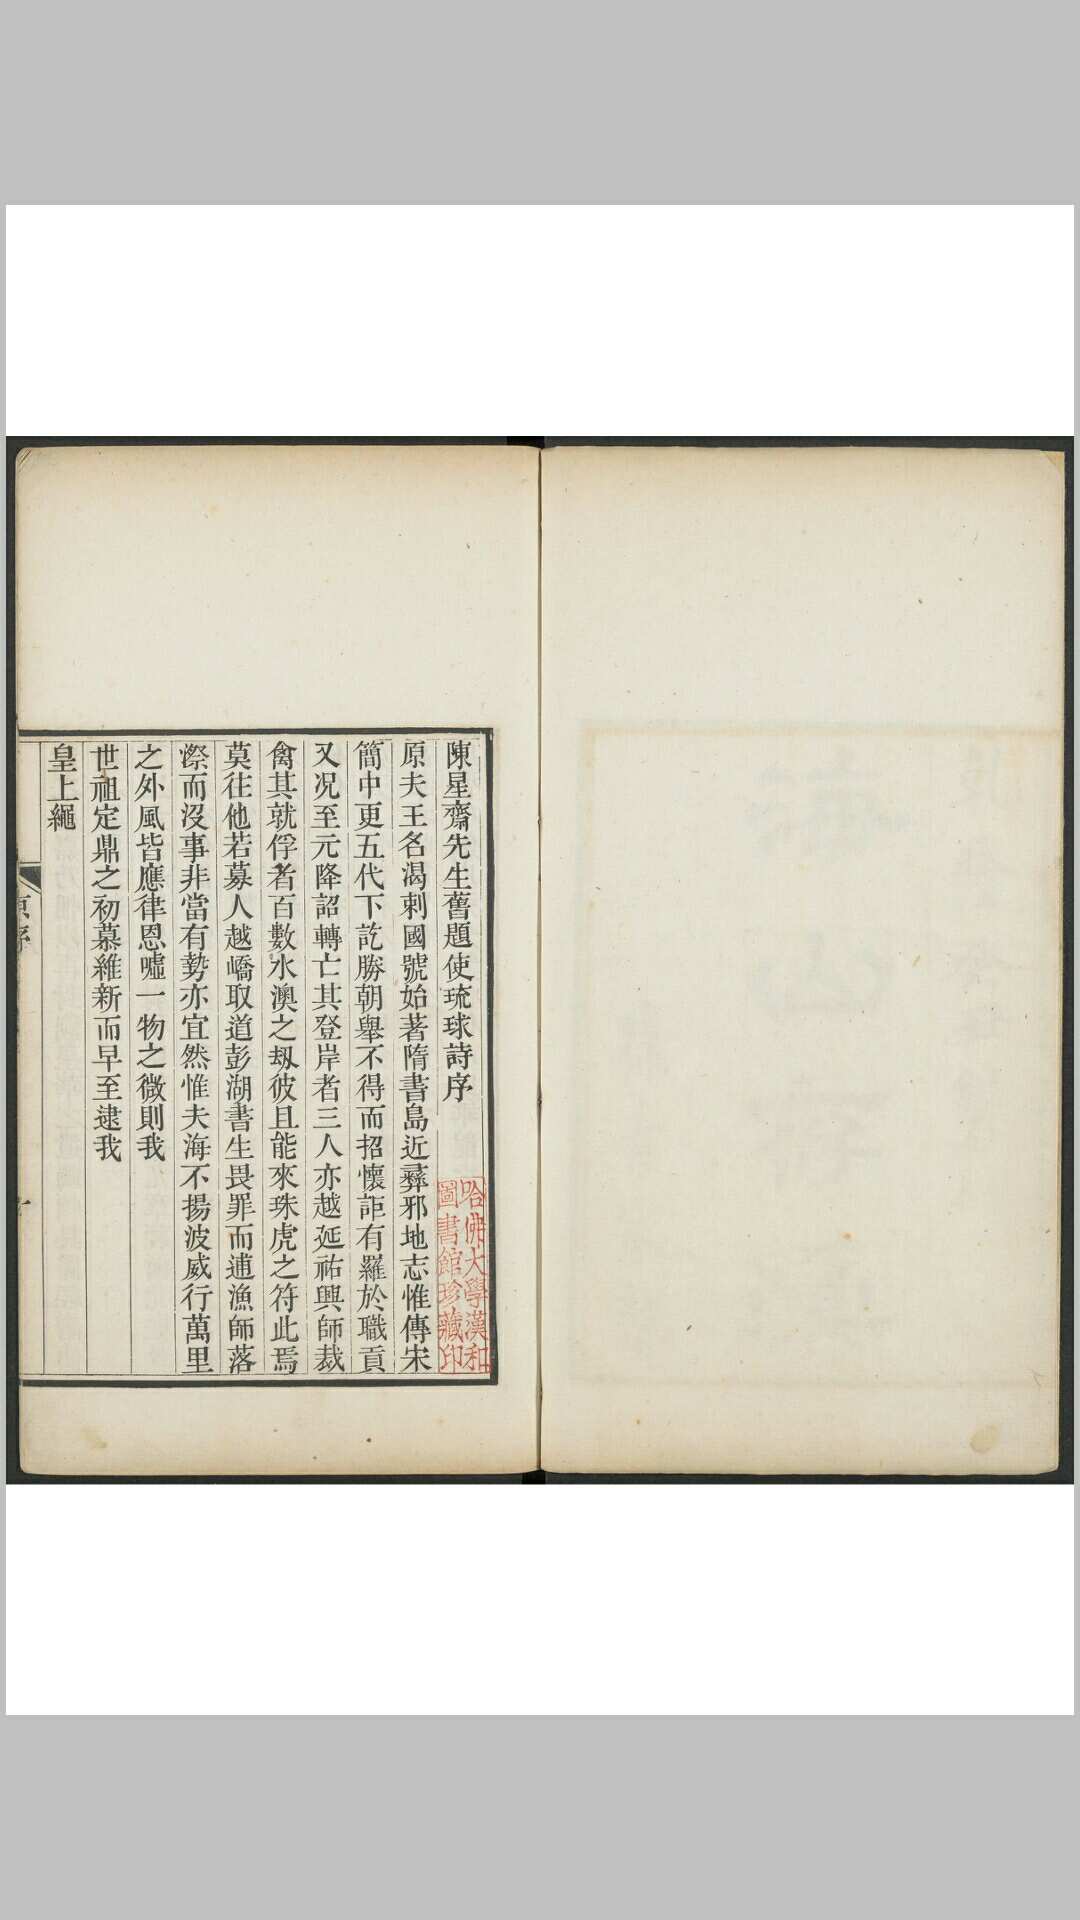 陳星齋先生舊題使琉球詩序
原夫王名渴剌國號始著隋書島近彞邪地志惟傳宋
簡中更五代下訖勝朝舉不得而招懷詎有羅於職貢
又况至元降詔轉亡其登岸者三人亦越延祐興師裁
禽其就俘者百數水澳之刼彼且能來珠虎之符此焉
莫往他若募人越嶠取道彭湖書生畏罪而逋漁師落
漈而沒事非當有勢亦宜然惟夫海不揚波威行萬里
之外風皆應律恩噓一物之微則我
世祖定鼎之初慕維新而早至逮我
皇上繩
哈佛大學漢和
圖書館珍藏印